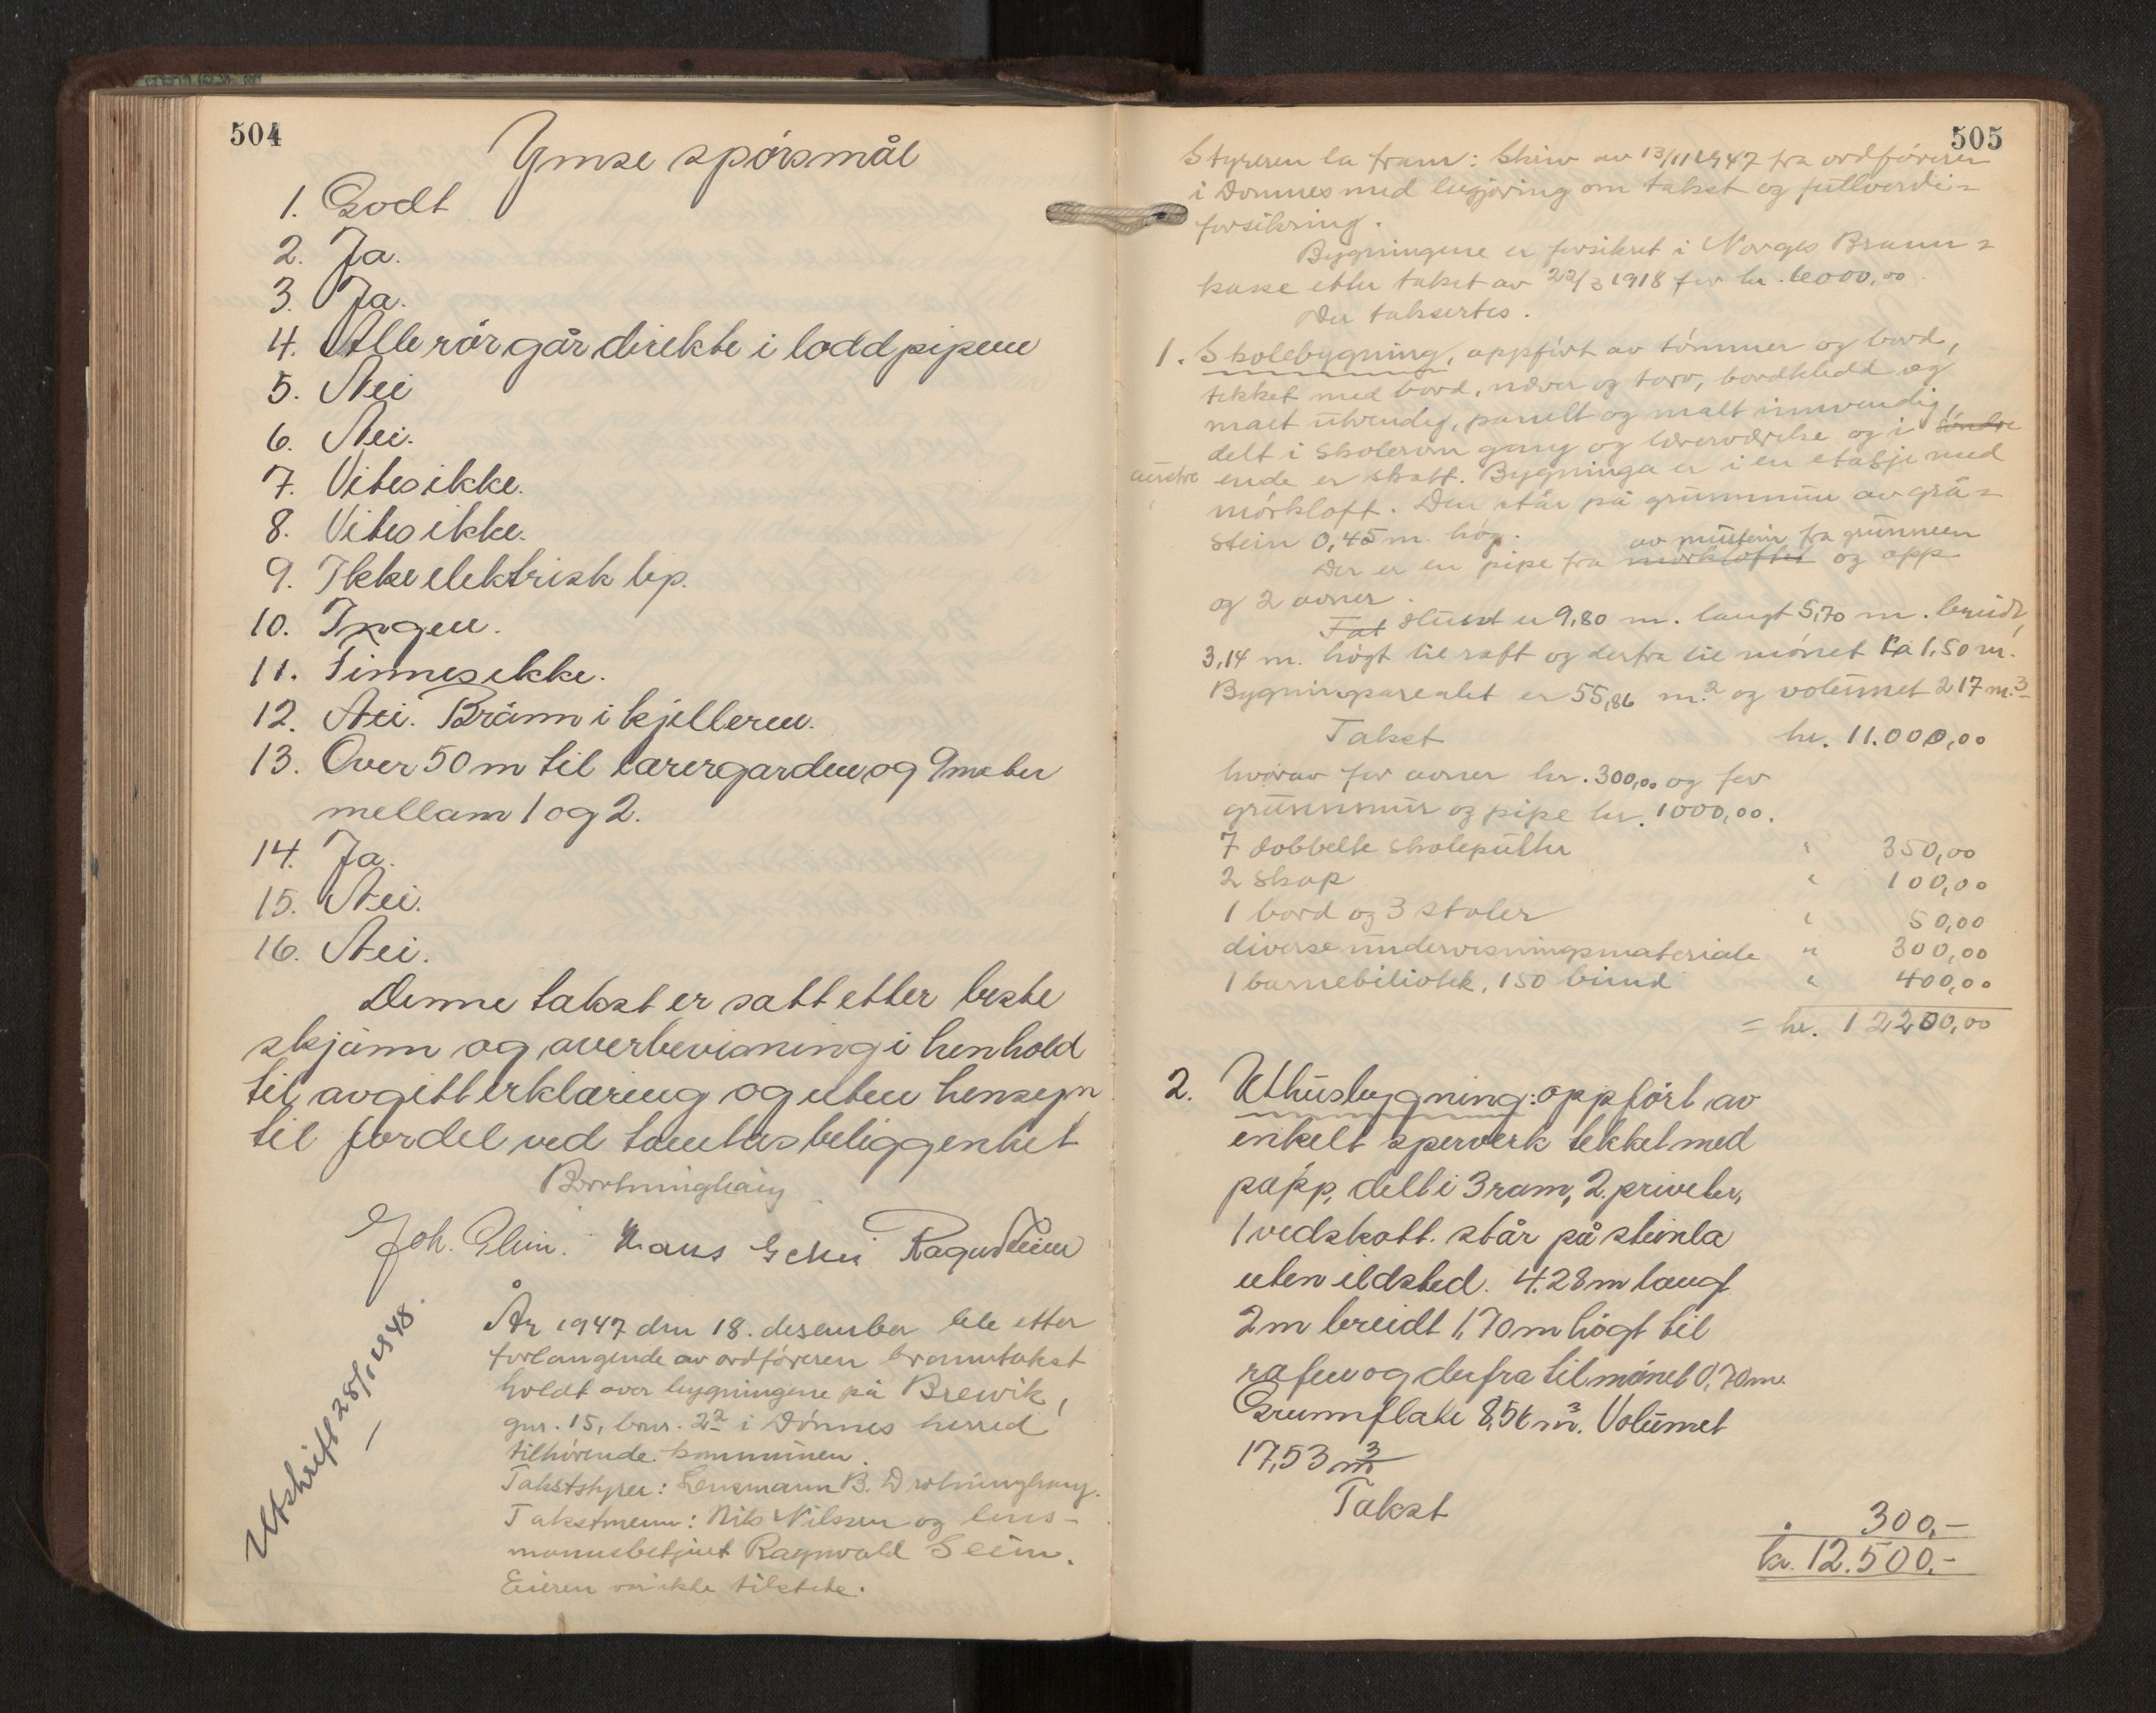 504
Ymse spörsmål
1. Godt
2. Ja.
3. Ja.
4. Alle rör går direkte i loddpipene
5. Nei
6. Nei.
7. Vites ikke.
8. Vites ikke.
9. Ikke elektrisk lys.
10. Ingen.
11. Finnes ikke.
12. Nei. Brönn i kjelleren.
13. Over 50 m til lærergarden og 9 meter
mellam 1 og 2.
14. Ja.
15. Nei.
16. Nei.
Denne takst er satt etter beste
skjönn og overbevisning i henhold
til avgitt erklæring og uten hensyn
til fordel ved tomtas beliggenhet
Joh. Glein. Hans Ragnv Seim
Utskrift 28/1 1948.
År 1947 den 18. desember ble etter
forlangende av ordföreren branntakst
holdt over bygningene på Brewik,
gnr. 15, bnr. 22 i Dönnes herred
tilhörende kommunen.
Takststyrer: Lensmann B. Drotninghaug.
Takstmenn: Nils Nilssen og lens-
mannsbetjent Ragnvald Seim.
Eieren var ikke tilstede.
505
Styreren la fram: Skriv av 13/11 1947 fra ordföreren
i Dönnes med begjæring om takst og fullverdi=
forsikring.
Bygningene er forsikret i Norges Brann=
kasse etter takst av 22/3 1918 for kr. 6000,00.
Der takseres.
1. Skolebygning, oppfört av tömmer og bord,
tekket med bord, never og torv, bordkledd og
malt utvendig, panelt og malt innvendig,
delt i skolerom gang og lærerværelse og i söndre
austre ende er skott. Bygninga er i en etasje med
mörkloft. Den står på grunnmur av grå=
stein 0,45 m. hög.
av murstein fra grunnen
Der er en pipe fra mörkloftet og opp
og 2 ovner.
Tat Huset er 9,80 m. langt 5,70 m. breidt,
3,14 m. högt til raft og derfra til mönet ca 1,50 m.
Bygningsarealet er 55,86 m.² og volumet 217 m.³
Takst kr. 11.000,00
hvorav for ovner kr. 300,00 og for
grunnmur og pipe kr. 1000,00.
7 dobbelte skolepulter " 350,00
2 skap " 100,00
1 bord og 3 stoler " 50,00
diverse undervisningsmateriale " 300,00
1 barnebiliotek, 150 bind " 400,00
= kr. 12200,00
2. Uthusbygning: oppfört av
enkelt sperverk tekket med
papp, delt i 3 rom, 2 priveter,
1 vedskott. står på steinla
uten ildsted. 4.28 m langt
2 m breidt 1,70 m högt til
rafen og derfra til mönet 0,70 m.
Grunnflate 8,56 m³. Volumet
17,53 m³
Takst
" 300,-
kr. 12.500,-